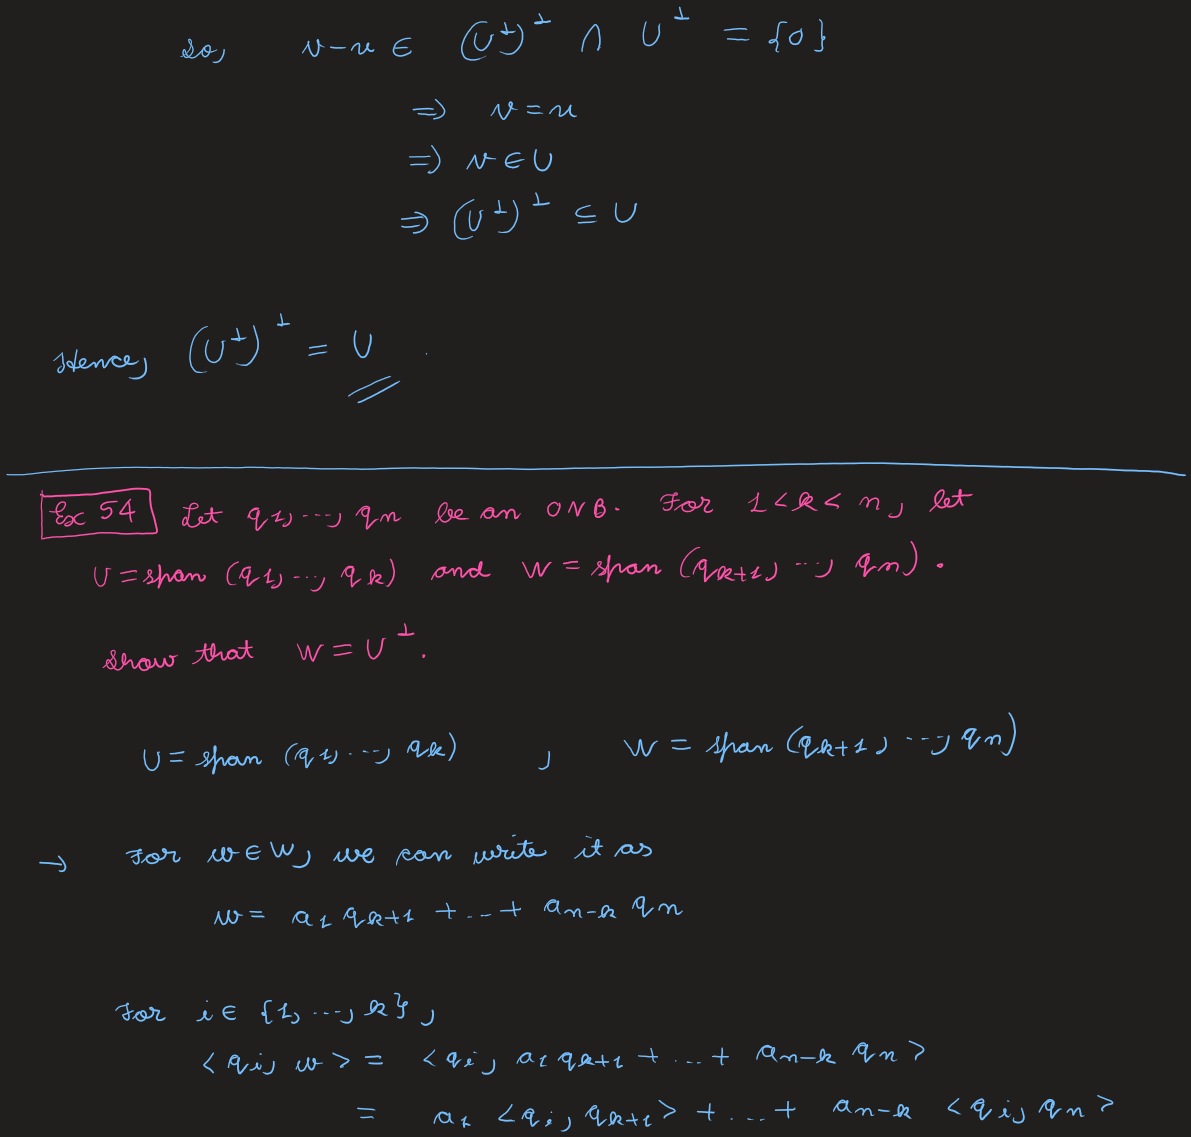 so, v-u ∈ (U⊥)⊥ ∩ U⊥ = {0}
⇒ v = u
⇒ v ∈ U
⇒ (U⊥)⊥ ⊆ U
Hence, (U⊥)⊥ = U
Ex 54 Let q1, ..., qn be an ONB. For 1 < k < n, let
U = span (q1, ..., qk) and W = span (qk+1, ..., qn).
Show that W = U⊥.
U = span (q1, ..., qk) , W = span (qk+1, ..., qn)
→ For w ∈ W, we can write it as
w = a1 qk+1 + ... + an-k qn
For i ∈ {1, ..., k},
<qi, w> = <qi, a1 qk+1 + ... + an-k qn>
= a1 <qi, qk+1> + ... + an-k <qi, qn>